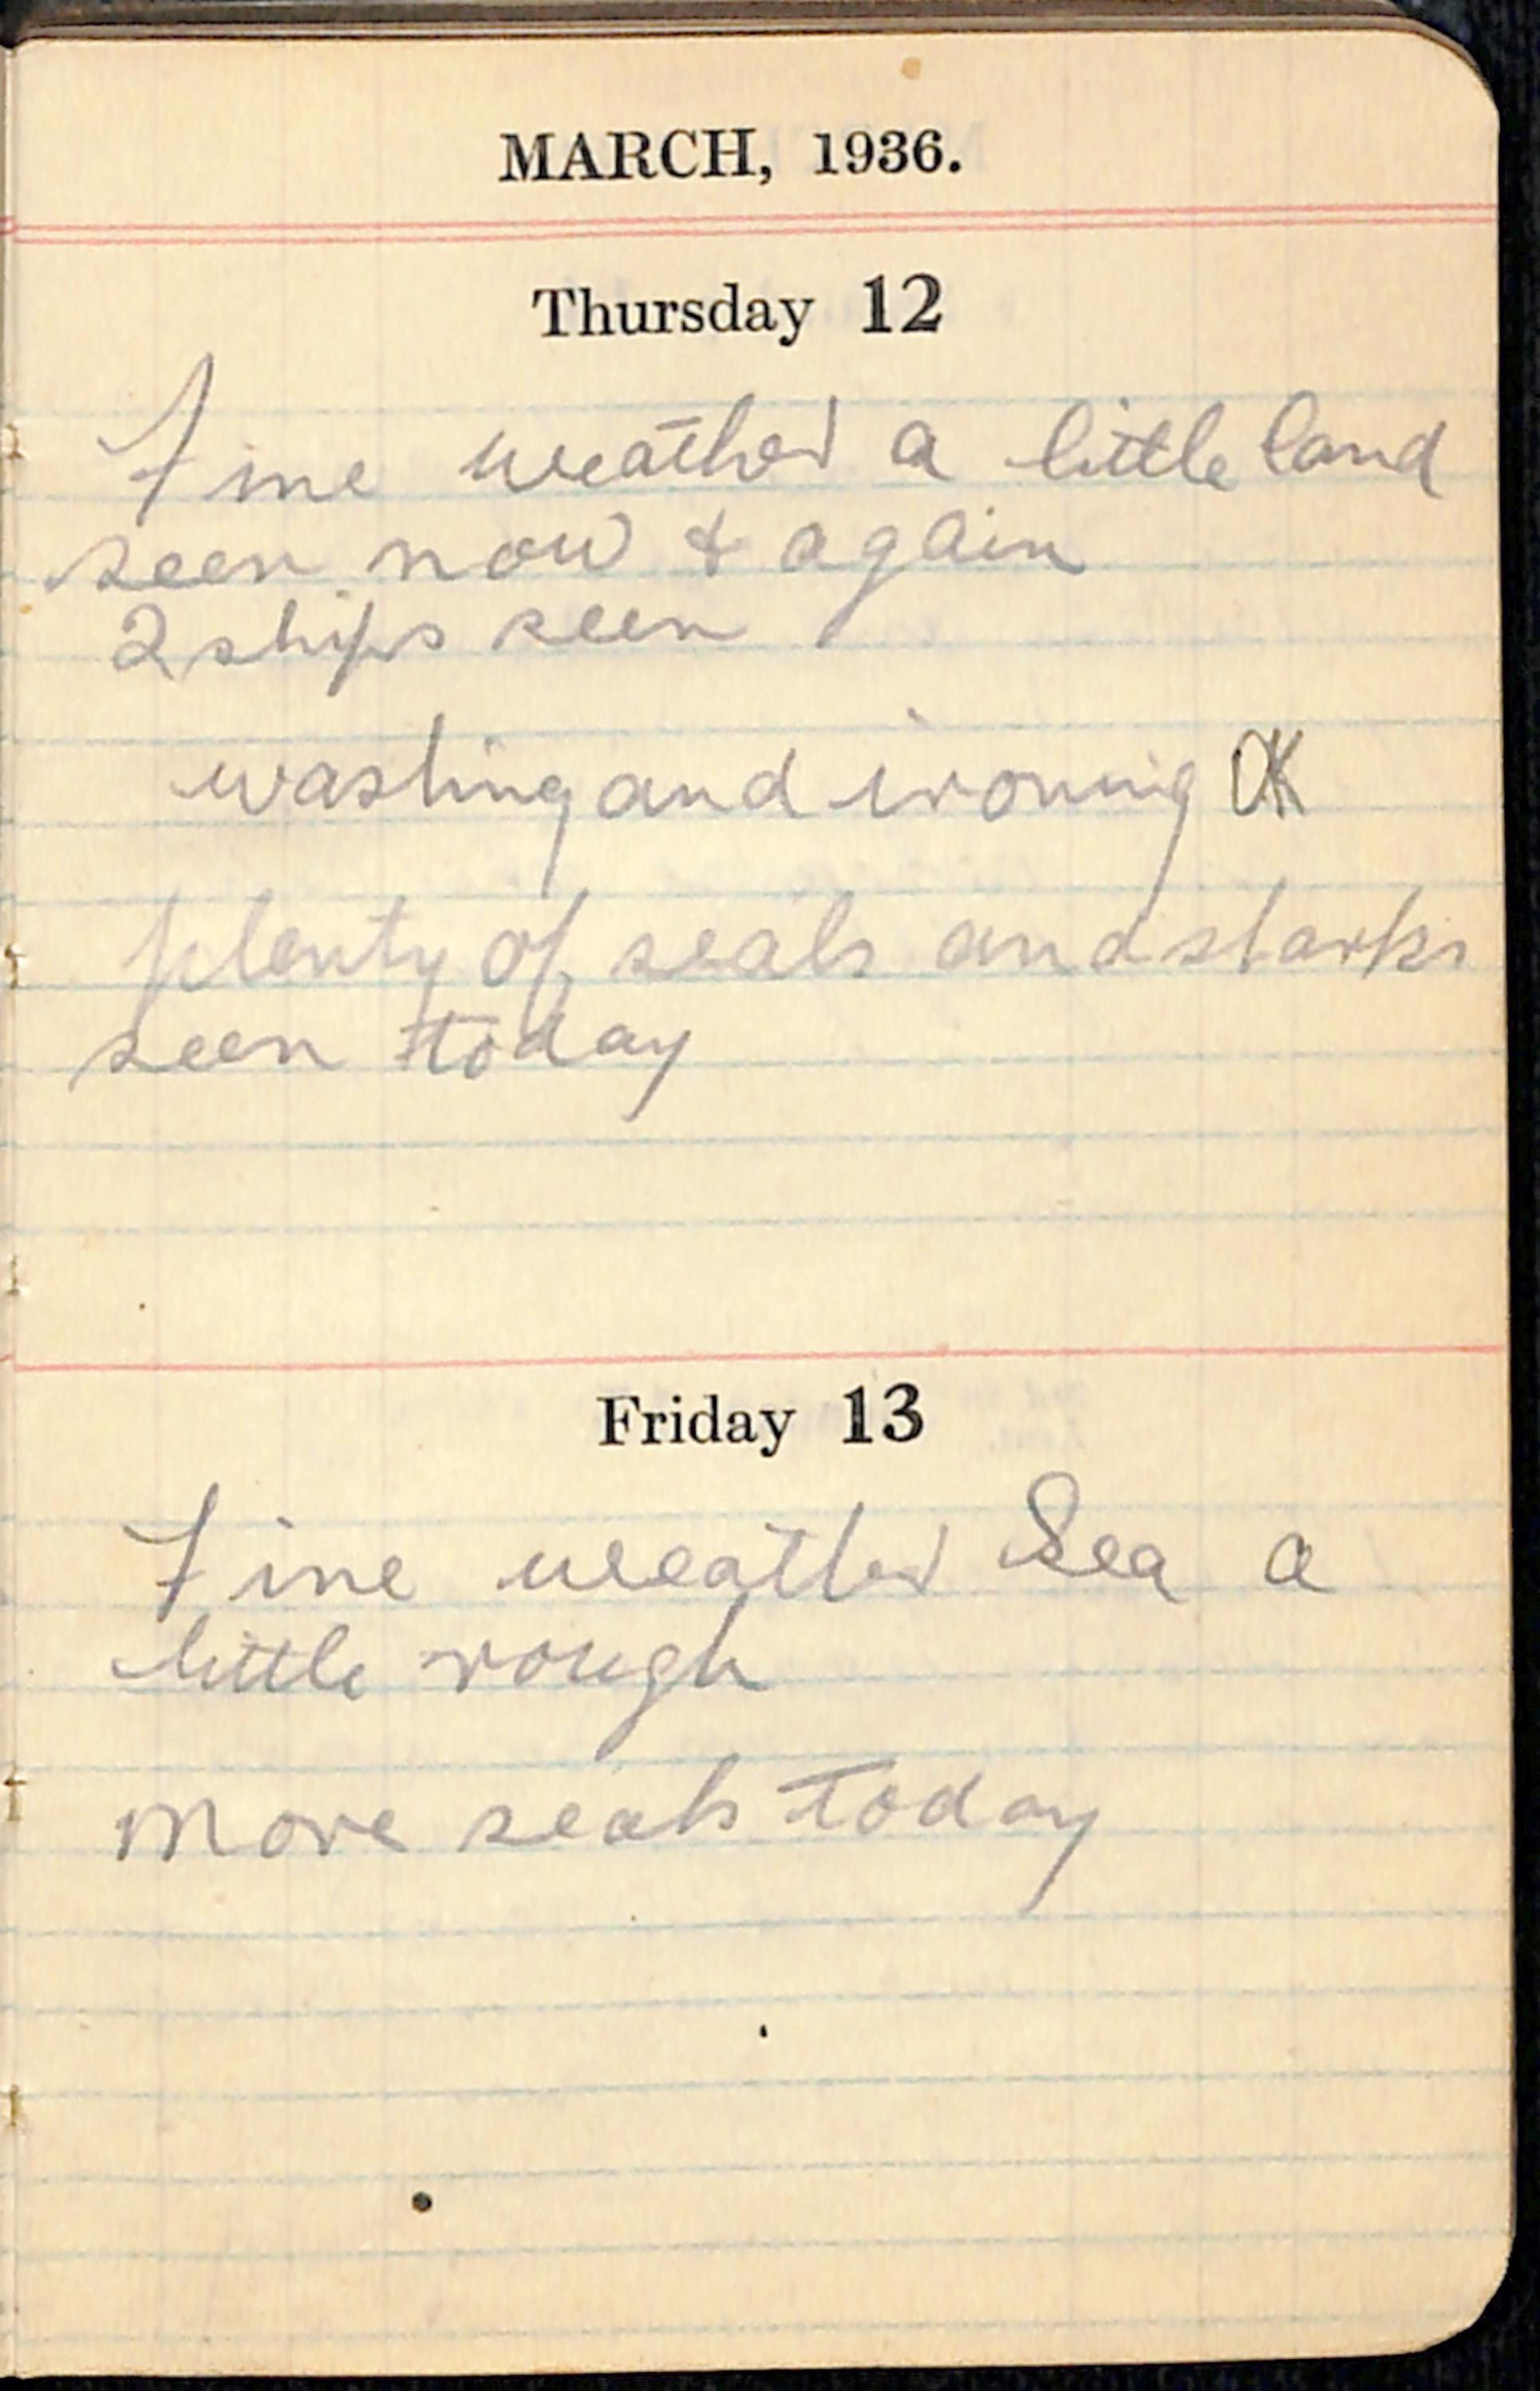 MARCH, 1936.
Thursday 12
Fine weather a little land
seen now & again
2 ships seen
washing and ironing OK
plenty of seals and sharks
seen today
Friday 13
Fine weather Sea a
little rough
More seals today